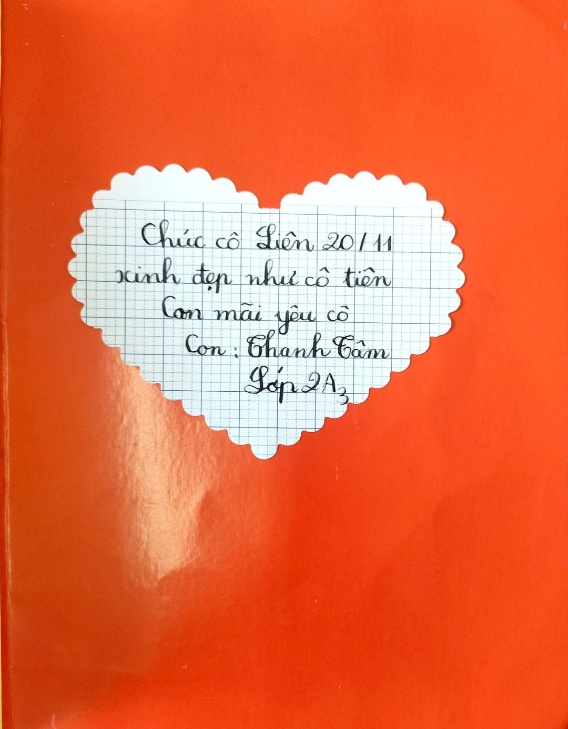 Chúc cô Liên 20/11
xinh đẹp như cô tiên
Con mãi yêu cô
Con: Thanh Tâm
Lớp 2A3